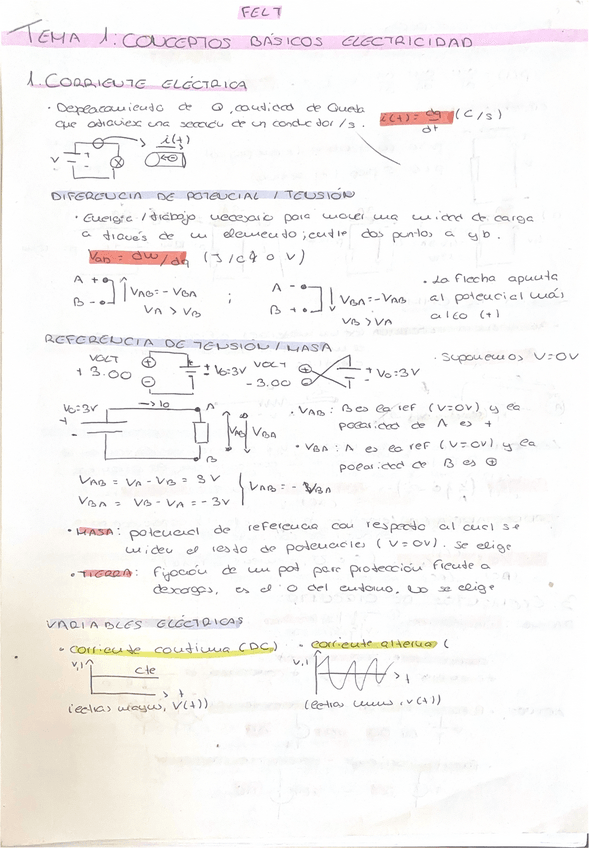 FELT
TEMA 1: CONCEPTOS BÁSICOS ELECTRICIDAD
1. CORRIENTE ELÉCTRICA
· Desplazamiento de Q, cantidad de
que atraviesa una sección de un conductor /s.
i(t) = dq/dt (C/s)
i(t)
V + -
DIFERENCIA DE POTENCIAL / TENSIÓN
· Energía / trabajo necesario para mover una unidad de carga
a través de un elemento; entre dos puntos a y b.
VAB = dW/dq (J/C o V)
A + VAB = -VBA
B - VA > VB
;
A - VBA = -VAB
B + VB > VA
· La flecha apunta
al potencial más
alto (+)
REFERENCIA DE TENSIÓN / MASA
VOLT + 3.00 + - V0=3V
VOLT - 3.00 + - V0=3V
· Suponemos V=0V
V0=3V + - I0 A B VAB VBA
· VAB: B es la ref (V=0V) y la
polaridad de A es +
· VBA: A es la ref (V=0V) y la
polaridad de B es +
VAB = VA - VB = 3V
VBA = VB - VA = -3V
VAB = - VBA
· MASA: potencial de referencia con respecto al cual se
miden el resto de potenciales (V=0V). Se elige
· TIERRA: Fijación de un pot para protección frente a
descargas, es el 0 del entorno. No se elige
VARIABLES ELÉCTRICAS
· corriente continua (DC)
V, I cte t
(letras mayus, V(t))
· corriente alterna (
V, I t
(letras minus, v(t))